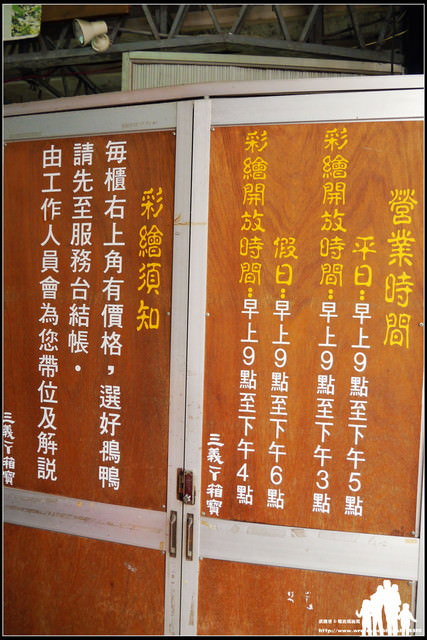 營業時間
平日：早上9點至下午5點
彩繪開放時間：早上9點至下午3點
假日：早上9點至下午6點
彩繪開放時間：早上9點至下午4點
三義ㄚ箱寶
彩繪須知
每櫃右上角有價格，選好鴨鴨
請先至服務台結帳．
由工作人員會為您帶位及解說
三義ㄚ箱寶